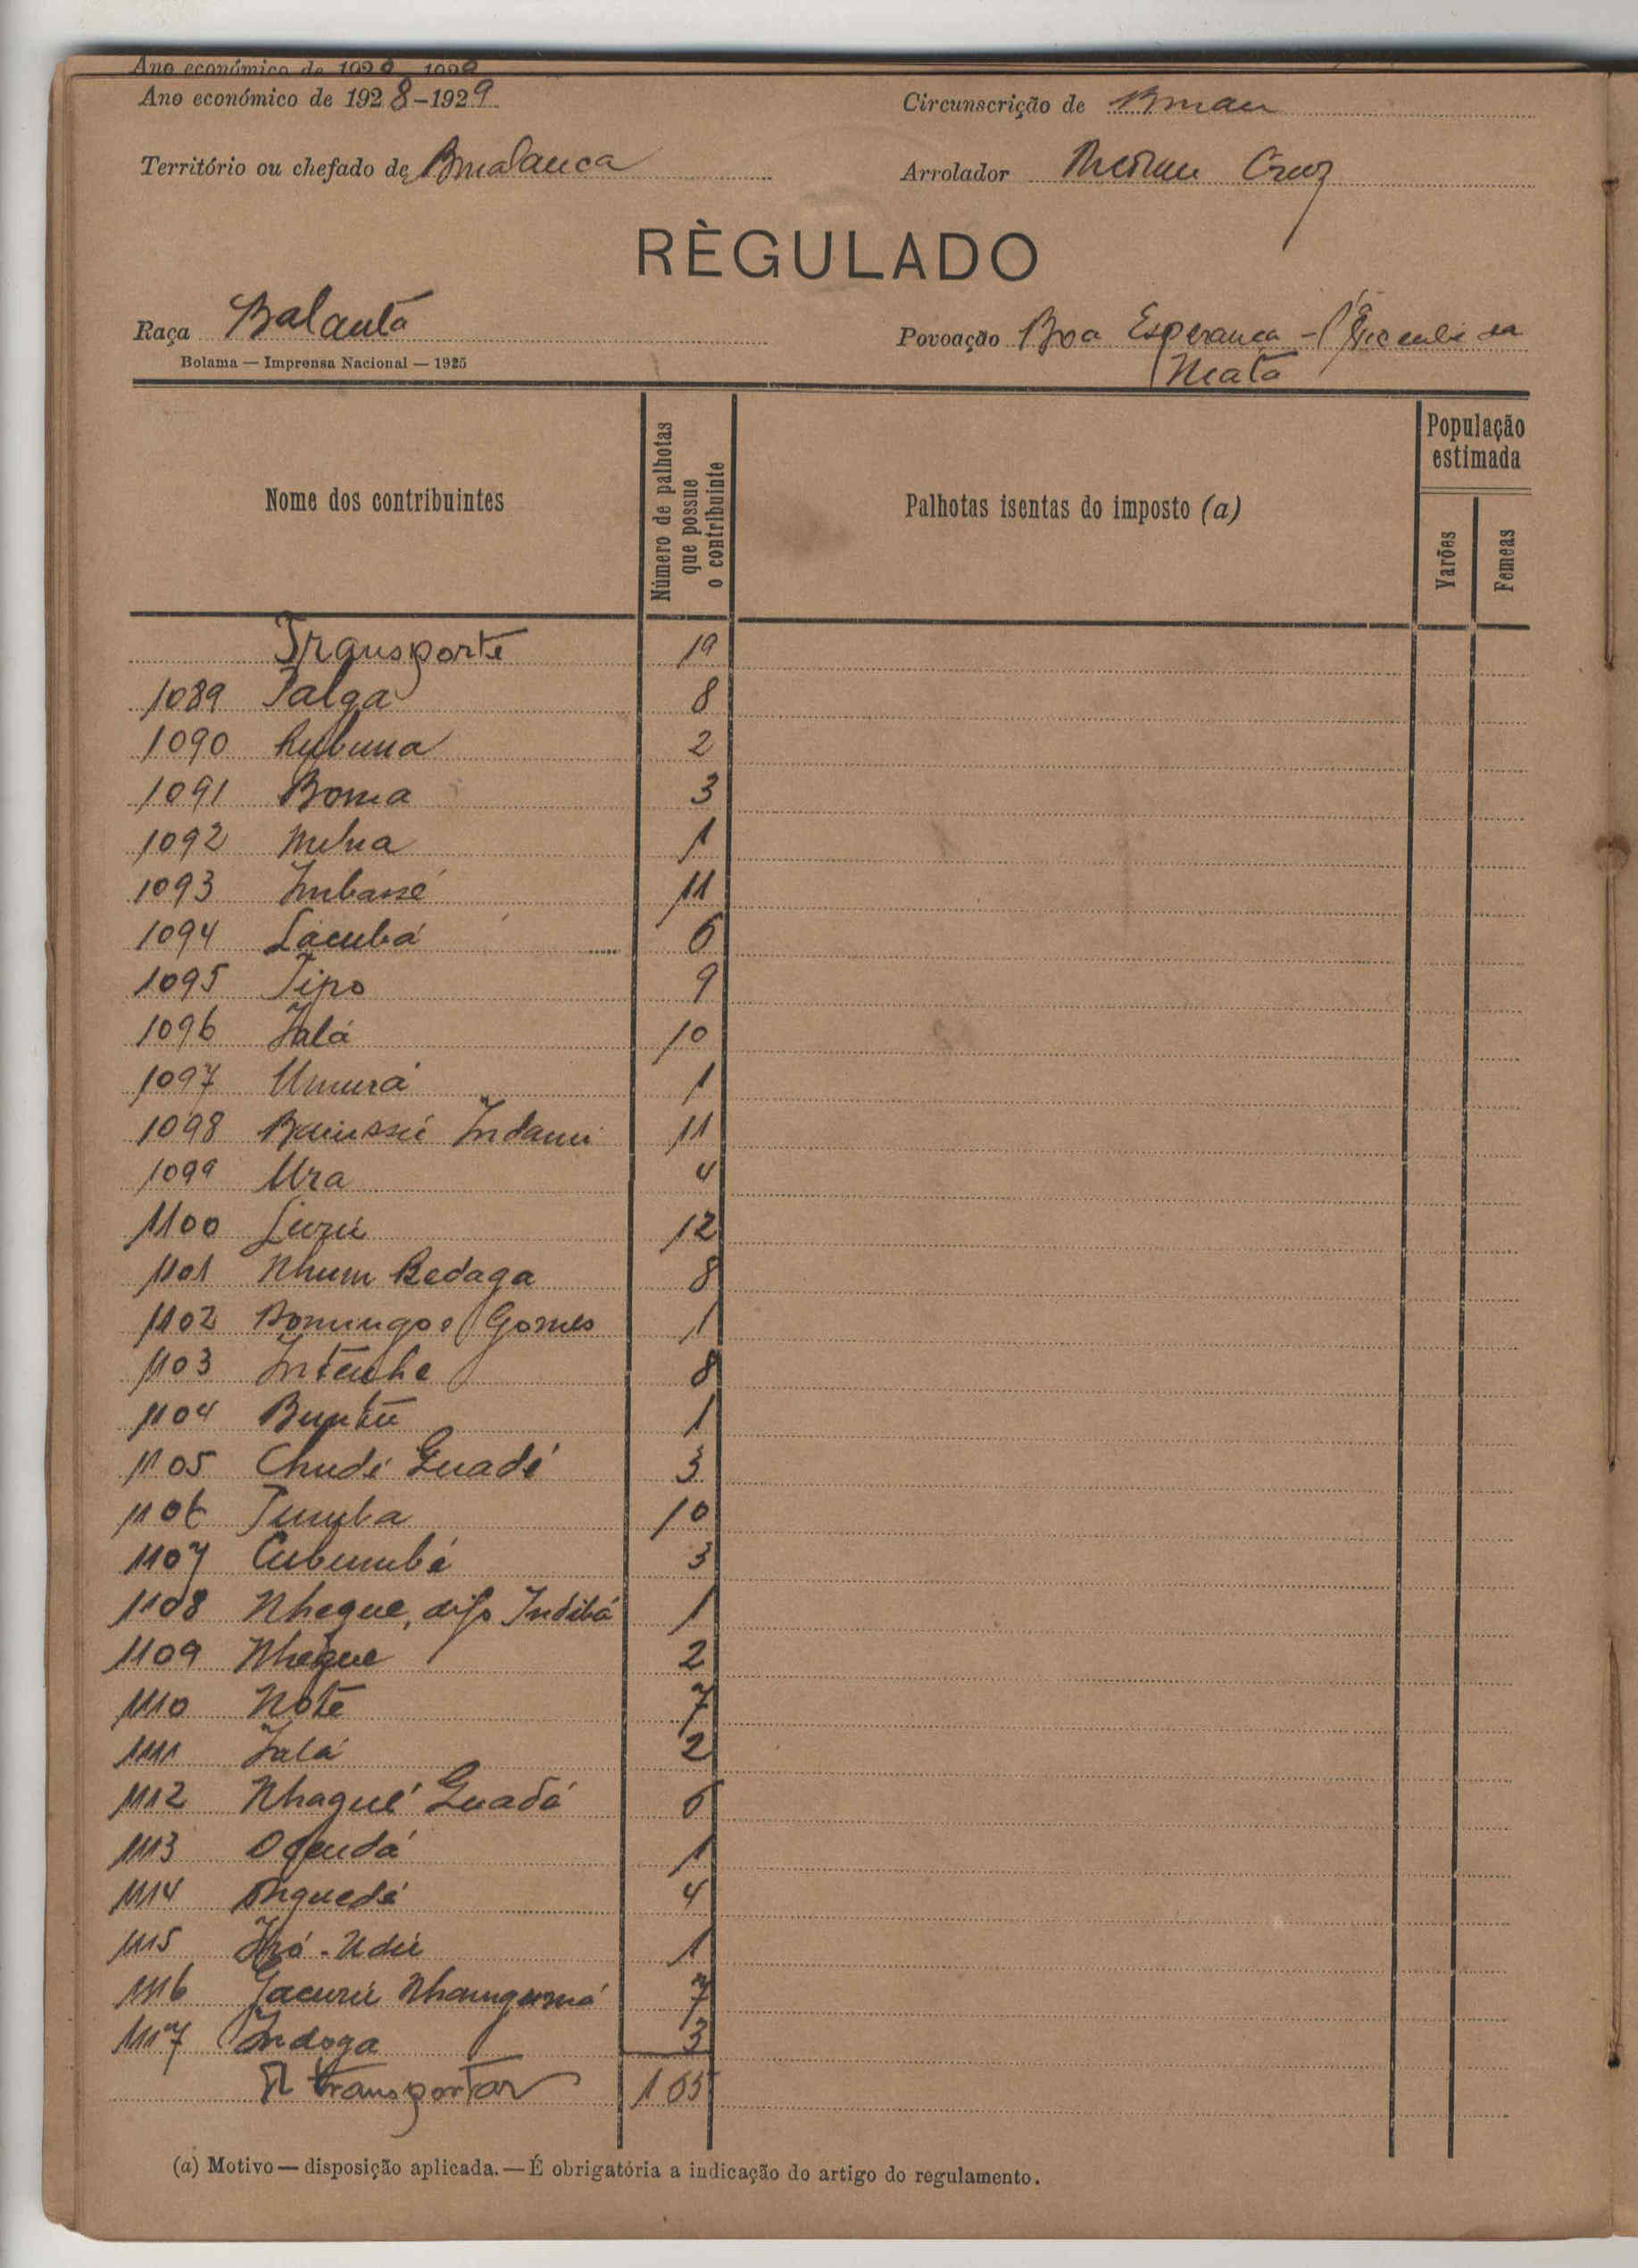 Ano económico de 1928-1929
Ano económico de 1928-1929
Circunscrição de
Território ou chefado de
Arrolador Cruz
RÈGULADO
Raça Balanta
Povoação Boa Esperanca -
Bolama — Imprensa Nacional — 1925
Mata
Nome dos contribuintes
Número de palhotas que possue o contribuinte
Palhotas isentas do imposto (a)
População estimada
Varões
Femeas
Transporte 19
1089 Talga 8
1090 2
1091 Boma 3
1092 1
1093 Imbassé 11
1094 Lacubá 6
1095 Tipo 9
1096 Jalá 10
1097 Umurá 1
1098 11
1099 Ura 4
1100 12
1101 Nhum Bedaga 8
1102 Domingos Gomes 1
1103 Intenhe 8
1104 1
1105 Chudé Guadé 3
1106 Tumba 10
1107 Cubumbé 3
1108 Nhegue, difo Indibá 1
1109 Nhegue 2
1110 Noté 7
1111 Jalá 2
1112 Nhagué Guadá 6
1113 Ogendá 1
1114 4
1115 1
1116 7
1117 Indoga 3
A transportar 165
(a) Motivo — disposição aplicada. — É obrigatória a indicação do artigo do regulamento.